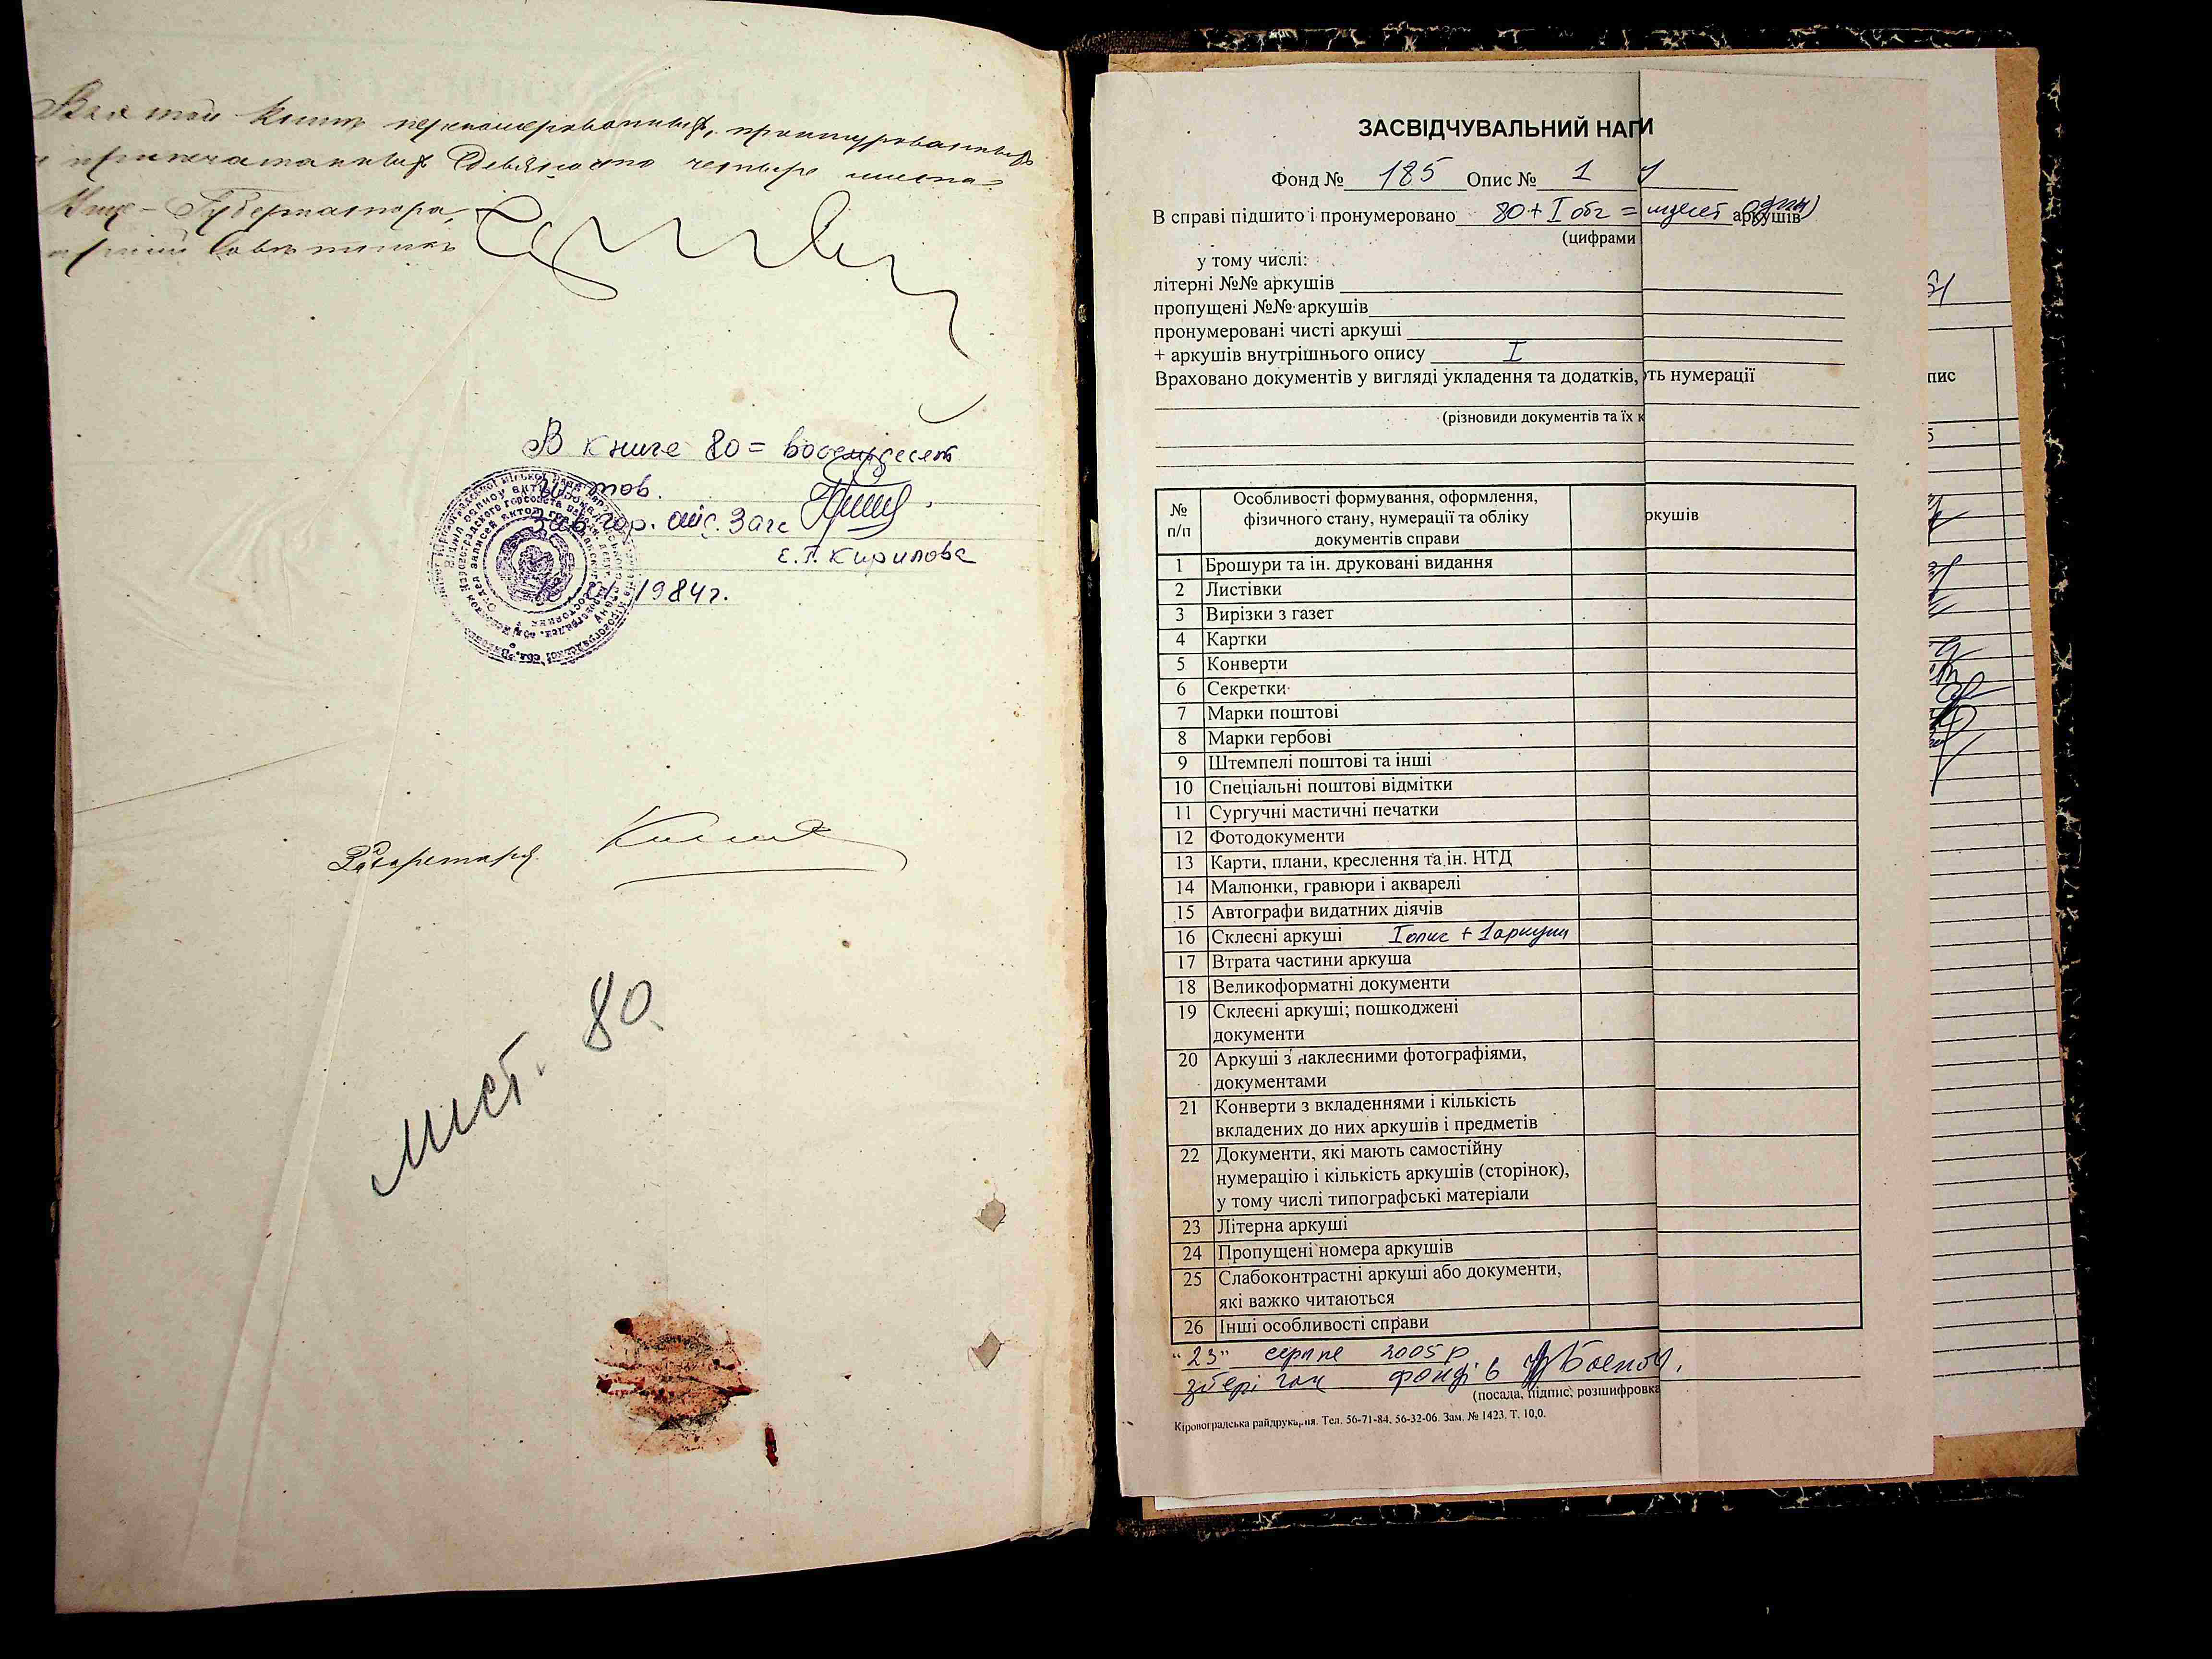 Въ этой книгѣ перенумерованныхъ, прошнурованныхъ
и припечатанныхъ девяносто четыре листа
Вице-Губернатора,
Совѣтникъ
В книге 80 = восемьдесят
листов.
Зав. гор. отд. Загс
Е. Г. Кирилова
1984г.
Секретаря
лист. 80.
ЗАСВІДЧУВАЛЬНИЙ НАПИ
Фонд № 185 Опис № 1
В справі підшито і пронумеровано 80 + I обг = аркушів
(цифрами
у тому числі:
літерні №№ аркушів
пропущені №№ аркушів
пронумеровані чисті аркуші
+ аркушів внутрішнього опису I
Враховано документів у вигляді укладення та додатків, ть нумерації
(різновиди документів та їх к
№ п/п Особливості формування, оформлення,
фізичного стану, нумерації та обліку
документів справи
ркушів
1 Брошури та ін. друковані видання
2 Листівки
3 Вирізки з газет
4 Картки
5 Конверти
6 Секретки
7 Марки поштові
8 Марки гербові
9 Штемпелі поштові та інші
10 Спеціальні поштові відмітки
11 Сургучні мастичні печатки
12 Фотодокументи
13 Карти, плани, креслення та ін. НТД
14 Малюнки, гравюри і акварелі
15 Автографи видатних діячів
16 Склеєні аркуші I опис + 1 аркуш
17 Втрата частини аркуша
18 Великоформатні документи
19 Склеєні аркуші; пошкоджені
документи
20 Аркуші з наклеєними фотографіями,
документами
21 Конверти з вкладеннями і кількість
вкладених до них аркушів і предметів
22 Документи, які мають самостійну
нумерацію і кількість аркушів (сторінок),
у тому числі типографські матеріали
23 Літерна аркуші
24 Пропущені номера аркушів
25 Слабоконтрастні аркуші або документи,
які важко читаються
26 Інші особливості справи
"23" серпня 2005 р
зберігач фондів
(посада, підпис, розшифровка
Кіровоградська райдрукарня. Тел. 56-71-84, 56-32-06. Зам. № 1423. Т. 10,0.
пис